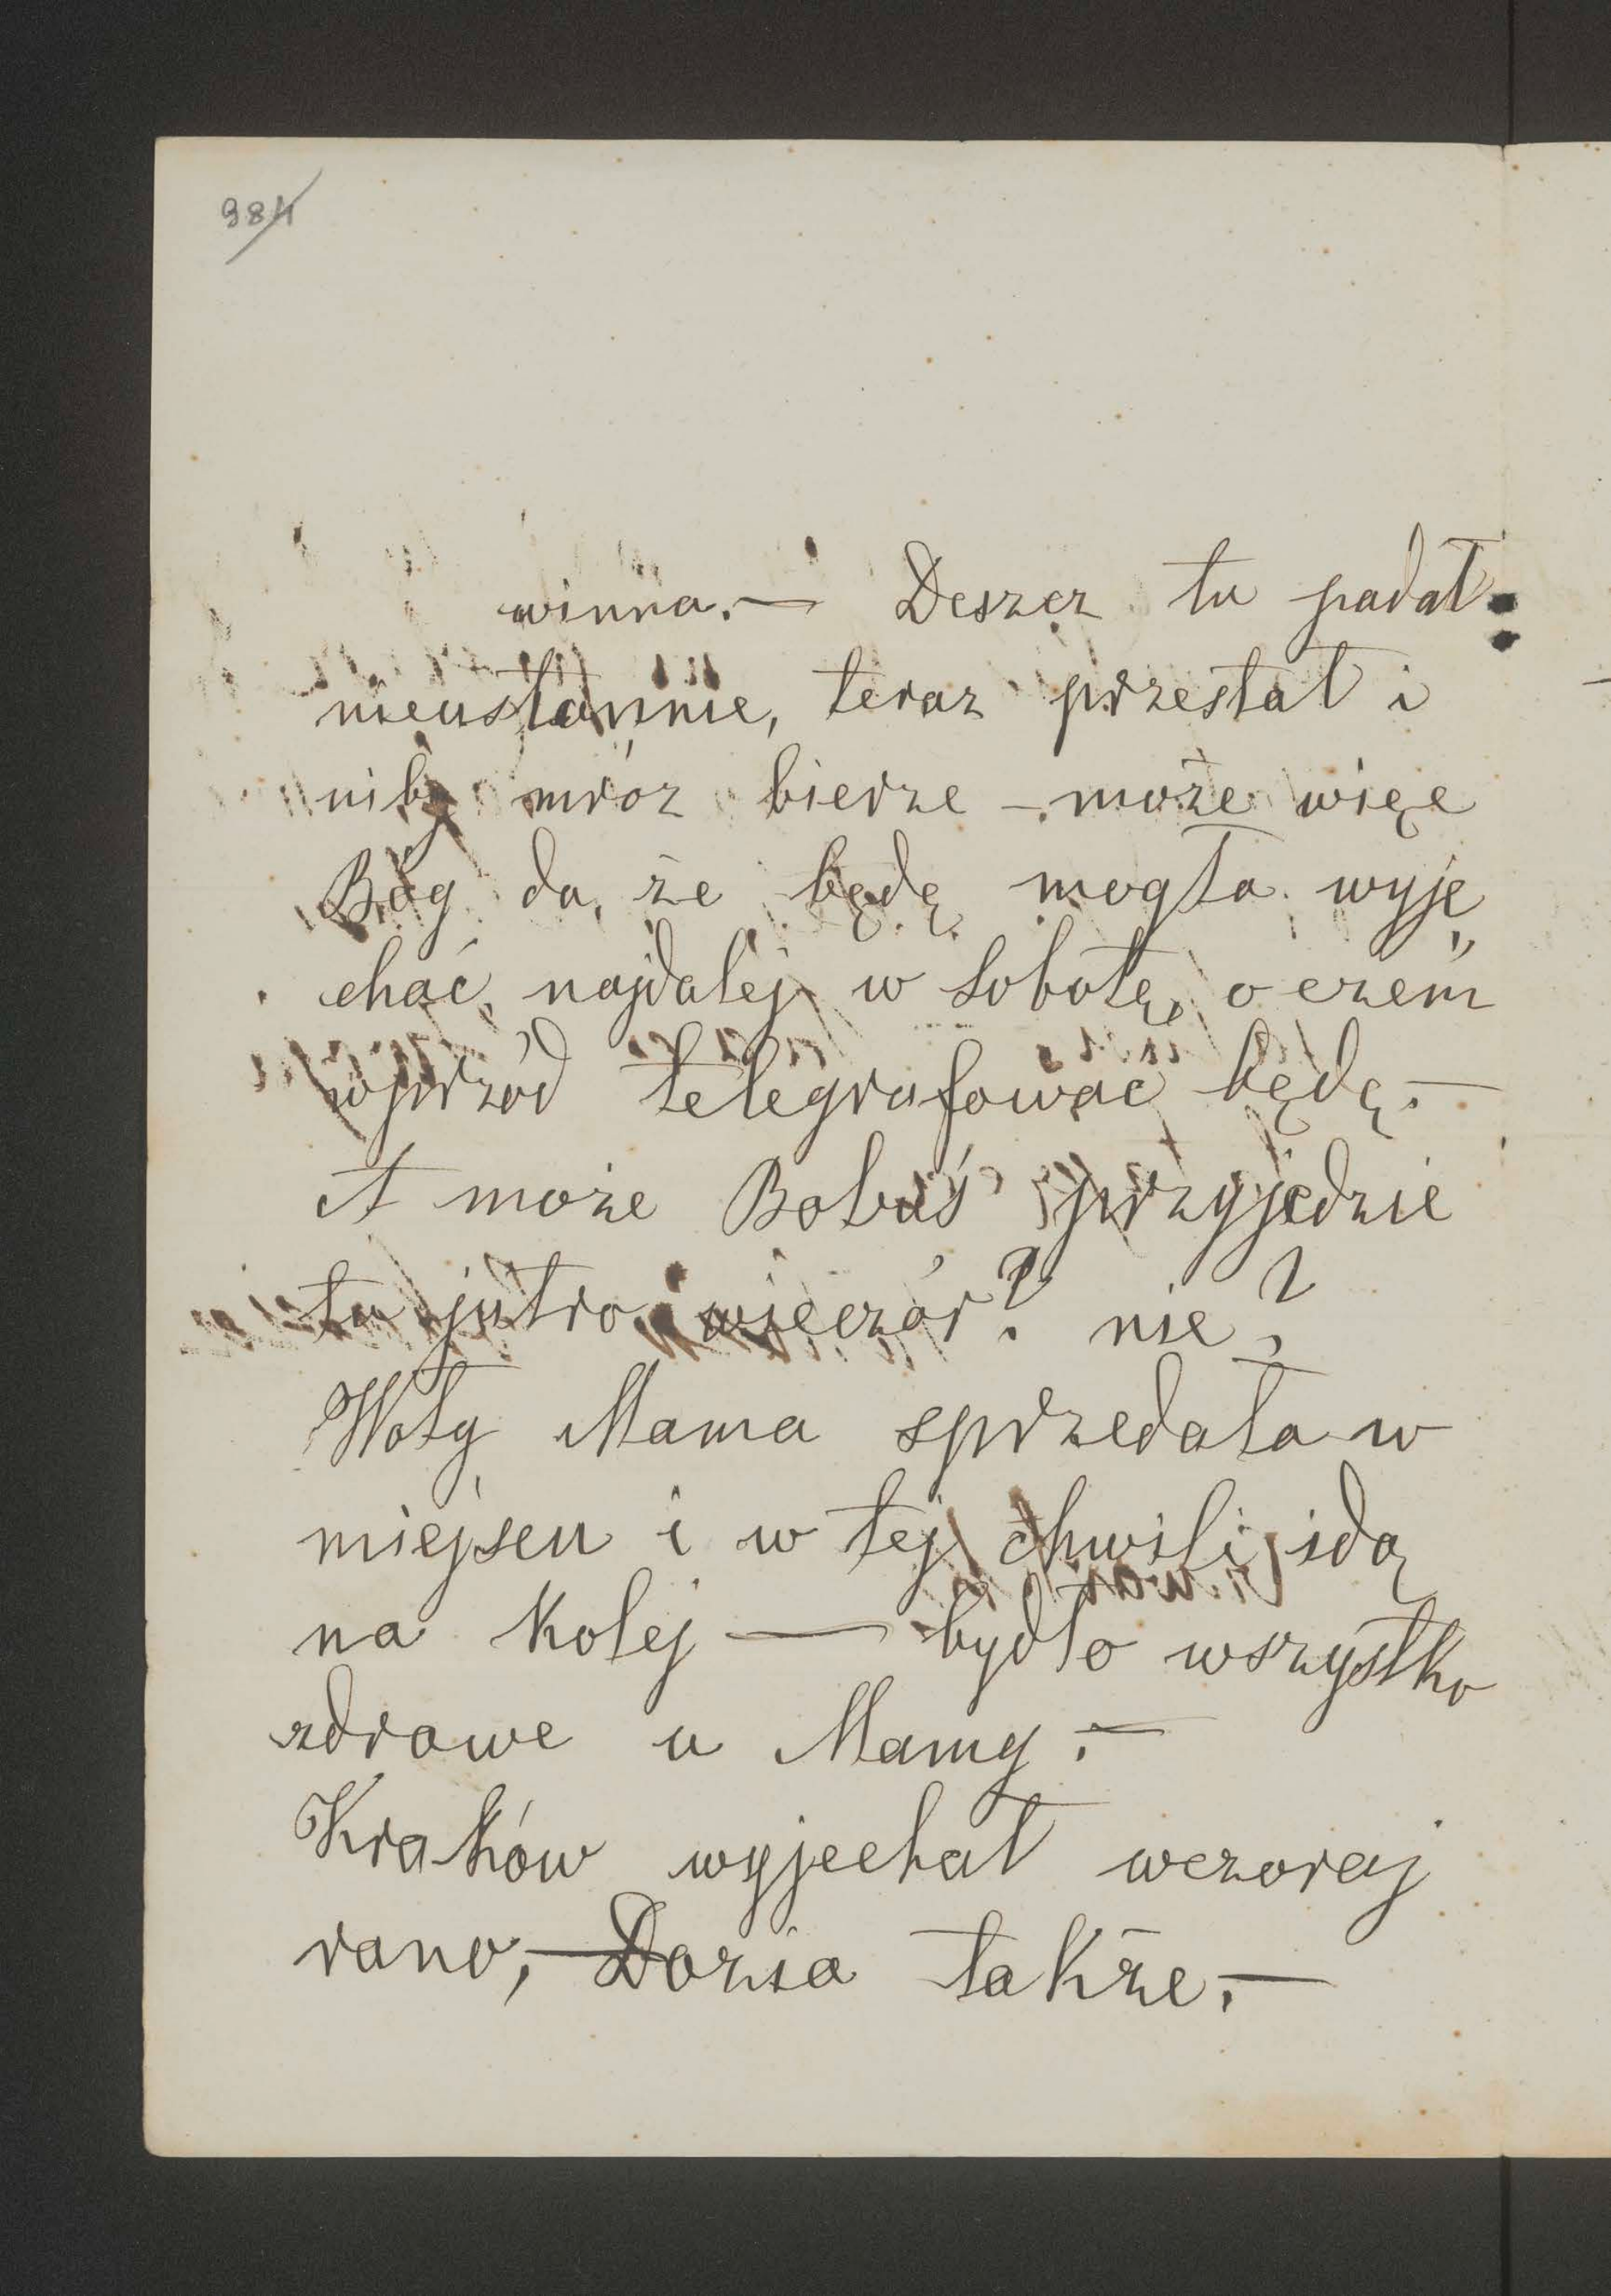 984
winna. — Deszcz tu padał
nieustannie, teraz przestał i
niby mróz bierze — może więc
Bóg da, że będę mogła wyje„
chać, najdalej w Sobotę, o czem
wprzód telegrafować będę. —
A może Bobuś przyjedzie
tu jutro wieczór? nie?
Woły Mama sprzedała w
miejscu i w tej chwili idą
na kolej — bydło wszystko
zdrowe u Mamy. —
Kraków wyjechał wczoraj
rano, — Dozia także. —